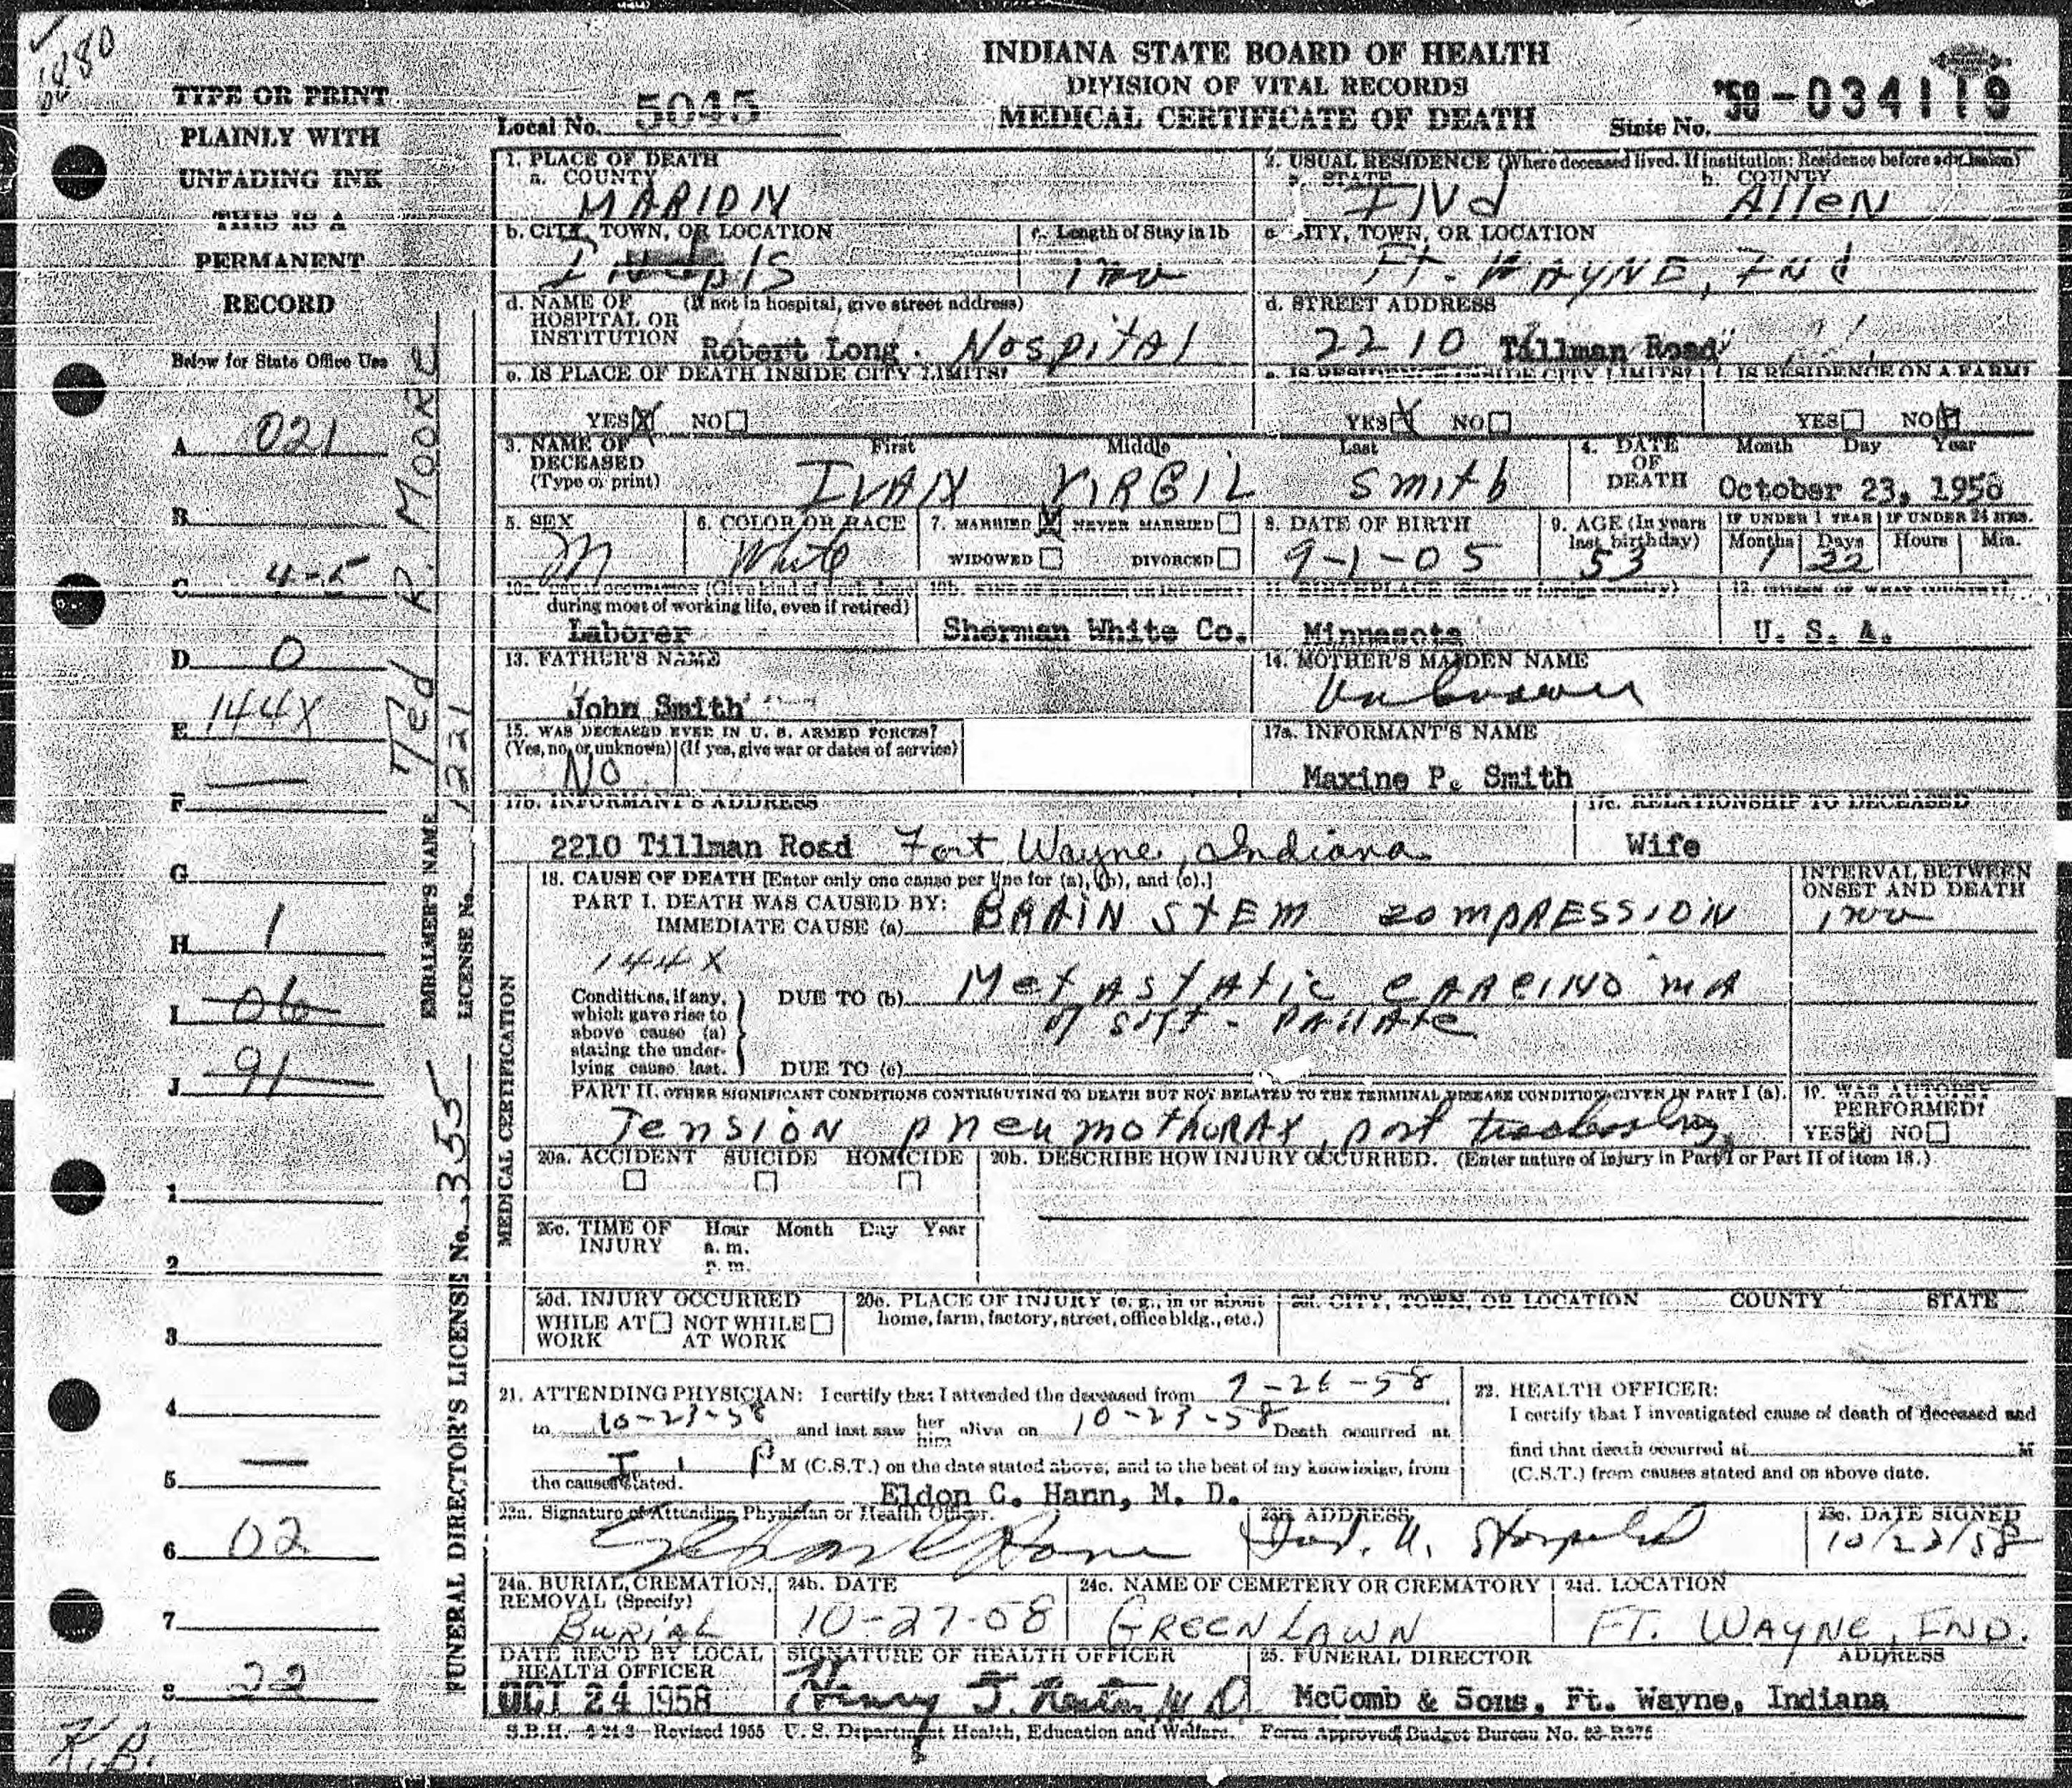 6480
INDIANA STATE BOARD OF HEALTH
DIVISION OF VITAL RECORDS
MEDICAL CERTIFICATE OF DEATH
Local No. 5045
State No. '58-034119
TYPE OR PRINT
PLAINLY WITH
UNFADING INK
THIS IS A
PERMANENT
RECORD
Below for State Office Use
A 021
B
C 4-5
D 0
E 144X
F —
G
H 1
I 06
J 91
1
2
3
4
5 —
6 02
7
8 22
K.B.
EMBALMER'S NAME Ted R. MOORE
LICENSE No. 1221
FUNERAL DIRECTOR'S LICENSE No. 355
1. PLACE OF DEATH
a. COUNTY
MARION
2. USUAL RESIDENCE (Where deceased lived. If institution: Residence before admission)
a. STATE b. COUNTY
INd Allen
b. CITY, TOWN, OR LOCATION c. Length of Stay in 1b
1 mo
c. CITY, TOWN, OR LOCATION
Ft. WAYNE, INd
d. NAME OF (If not in hospital, give street address)
HOSPITAL OR
INSTITUTION Robert Long Hospital
d. STREET ADDRESS
2210 Tillman Road
e. IS PLACE OF DEATH INSIDE CITY LIMITS?
YES X NO
e. IS RESIDENCE INSIDE CITY LIMITS? f. IS RESIDENCE ON A FARM?
YES X NO YES NO X
3. NAME OF First Middle Last
DECEASED
(Type or print) IVAN VIRGIL Smith
4. DATE Month Day Year
OF
DEATH October 23, 1958
5. SEX
M
6. COLOR OR RACE
White
7. MARRIED X NEVER MARRIED
WIDOWED DIVORCED
8. DATE OF BIRTH
9-1-05
9. AGE (In years
last birthday)
53
IF UNDER 1 YEAR IF UNDER 24 HRS.
Months Days Hours Min.
1 22
10a. USUAL OCCUPATION (Give kind of work done
during most of working life, even if retired)
Laborer
10b. KIND OF BUSINESS OR INDUSTRY
Sherman White Co.
11. BIRTHPLACE (State or foreign country)
Minnesota
12. CITIZEN OF WHAT COUNTRY?
U. S. A.
13. FATHER'S NAME
John Smith
14. MOTHER'S MAIDEN NAME
Unknown
15. WAS DECEASED EVER IN U. S. ARMED FORCES?
(Yes, no, or unknown) (If yes, give war or dates of service)
No
17a. INFORMANT'S NAME
Maxine P. Smith
17b. INFORMANT'S ADDRESS
2210 Tillman Road Fort Wayne, Indiana
17c. RELATIONSHIP TO DECEASED
Wife
18. CAUSE OF DEATH [Enter only one cause per line for (a), (b), and (c).]
INTERVAL BETWEEN
ONSET AND DEATH
PART I. DEATH WAS CAUSED BY:
IMMEDIATE CAUSE (a) BRAIN STEM COMPRESSION 1 mo
144X
MEDICAL CERTIFICATION
Conditions, if any,
which gave rise to
above cause (a)
stating the under-
lying cause last.
DUE TO (b) Metastatic carcinoma
of soft-pallate
DUE TO (c)
PART II. OTHER SIGNIFICANT CONDITIONS CONTRIBUTING TO DEATH BUT NOT RELATED TO THE TERMINAL DISEASE CONDITION GIVEN IN PART I (a).
Tension pneumothorax, post
19. WAS AUTOPSY
PERFORMED?
YES X NO
20a. ACCIDENT SUICIDE HOMICIDE
20b. DESCRIBE HOW INJURY OCCURRED. (Enter nature of injury in Part I or Part II of item 18.)
20c. TIME OF Hour Month Day Year
INJURY a. m.
p. m.
20d. INJURY OCCURRED
WHILE AT NOT WHILE
WORK AT WORK
20e. PLACE OF INJURY (e. g., in or about
home, farm, factory, street, office bldg., etc.)
20f. CITY, TOWN, OR LOCATION COUNTY STATE
21. ATTENDING PHYSICIAN: I certify that I attended the deceased from 9-26-58
to 10-23-58 and last saw her him alive on 10-23-58 Death occurred at
M (C.S.T.) on the date stated above; and to the best of my knowledge, from
the causes stated.
Eldon C. Hann, M. D.
22. HEALTH OFFICER:
I certify that I investigated cause of death of deceased and
find that death occurred at M
(C.S.T.) from causes stated and on above date.
23a. Signature of Attending Physician or Health Officer.
23b. ADDRESS
Ind. U. Hospital
23c. DATE SIGNED
10/23/58
24a. BURIAL, CREMATION,
REMOVAL (Specify)
BURIAL
24b. DATE
10-27-58
24c. NAME OF CEMETERY OR CREMATORY
GREENLAWN
24d. LOCATION
FT. WAYNE, IND.
DATE REC'D BY LOCAL
HEALTH OFFICER
OCT 24 1958
SIGNATURE OF HEALTH OFFICER
Henry M.D.
25. FUNERAL DIRECTOR ADDRESS
McComb & Sons, Ft. Wayne, Indiana
Revised 1955 U. S. Department Health, Education and Welfare. Form Approved Budget Bureau No.